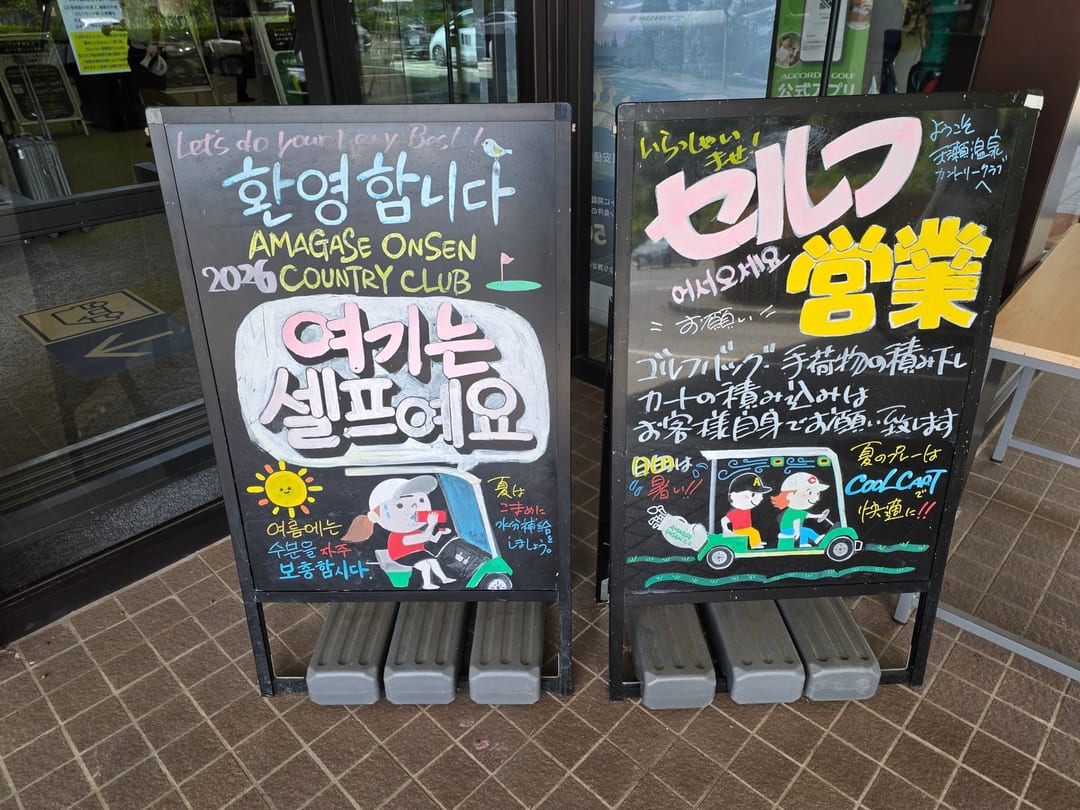 Let's do your Very Best!
환영합니다
AMAGASE ONSEN
2026 COUNTRY CLUB
여기는
셀프예요
여름에는
수분을 자주
보충합시다.
夏は
こまめに
水分補給を
しましょう。
いらっしゃい
ませ!
セルフ
営業
ようこそ
天瀬温泉
カントリークラブ
へ
어서오세요
お願い
ゴルフバッグ・手荷物の積み下し
カートの積み込みは
お客様自身でお願い致します
日田は
暑い!!
夏のプレーは
COOL CARTで
快適に!!
AMAGASE
ONSEN C.C.
ACCORDIA GOLF
公式アプリ